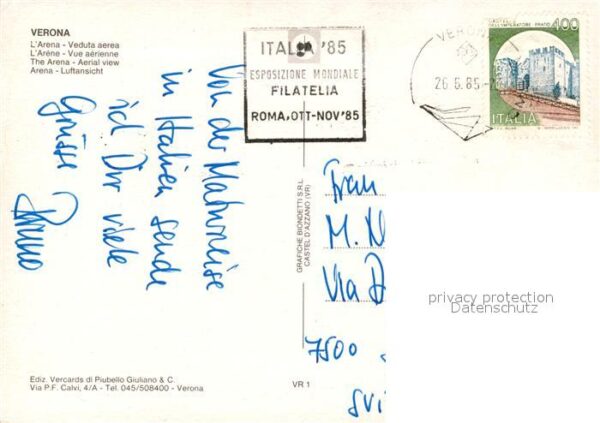 VERONA
L'Arena - Veduta aerea
L'Arène - Vue aérienne
The Arena - Aerial view
Arena - Luftansicht
ITALIA '85
ESPOSIZIONE MONDIALE
FILATELIA
ROMA, OTT-NOV '85
VERONA
26.6.85
CASTELLO DELL'IMPERATORE PRATO
400
ITALIA
Von der Maturareise
in Italien sende
ich Dir viele
Grüsse
Bruno
GRAFICHE BIONDETTI S.R.L.
CASTEL D'AZZANO (VR)
Frau
M.
Via
7500
privacy protection
Datenschutz
Ediz. Vercards di Piubello Giuliano & C.
Via P.F. Calvi, 4/A - Tel. 045/508400 - Verona
VR 1